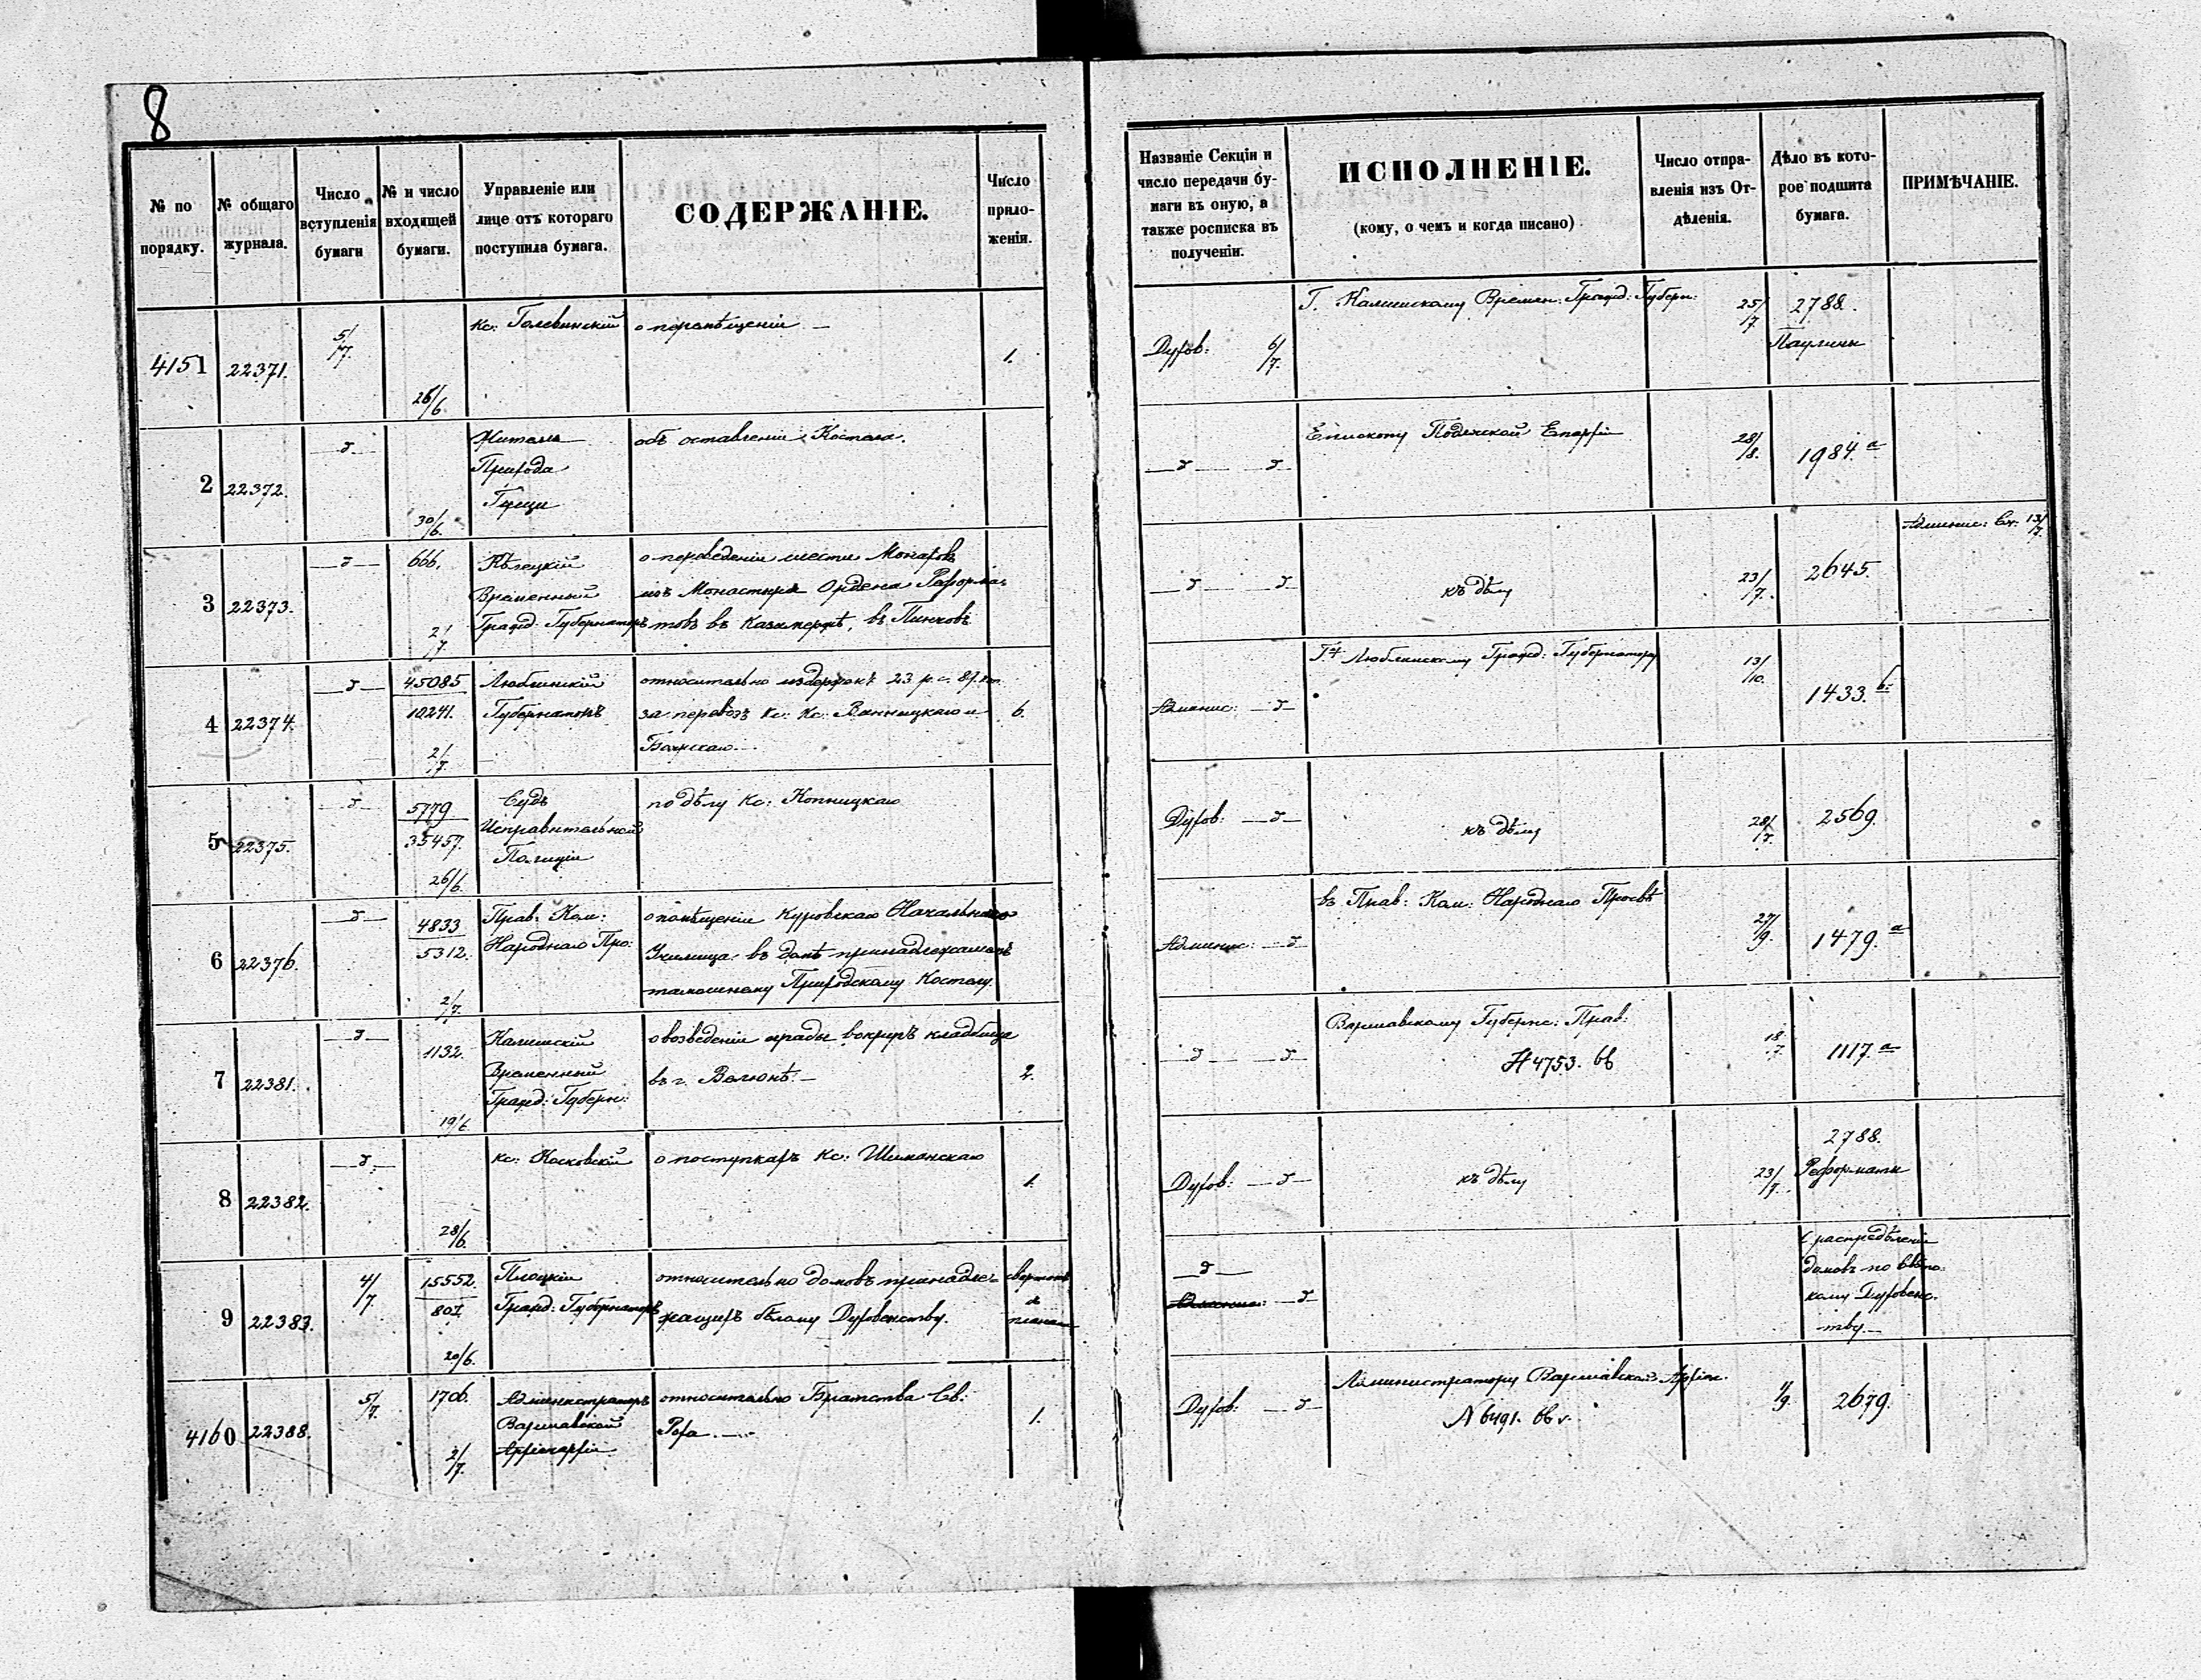 8
№ по порядку.
№ общаго журнала.
Число вступленія бумаги
№ и число входящей бумаги.
Управленіе или лице отъ котораго поступила бумага.
СОДЕРЖАНІЕ.
Число приложеніи.
Названіе Секціи и число передачи бумаги въ оную, а также росписка въ полученіи.
ИСПОЛНЕНІЕ.
(кому, о чемъ и когда писано)
Число отправленія изъ Отдѣленія.
Дѣло въ которое подшита бумага.
ПРИМѢЧАНІЕ.
4151 22371. 5/7. 26/6. Кс: Голевинскій о перемѣщеніи — 1. Духов: 6/7. Г. Калишскому Времен: Гражд: Губерн: 25/7 2788. Паулины
2 22372. —д— 30/6. Жители Прихода объ оставленіи Костела. —д— —д— Епископу Епархіи 28/8. 1984.а
3 22373. —д— 666. 2/7. Кѣлецкій Временный Гражд: Губернаторъ о переведеніи шести Монаховъ изъ Монастыря Ордена Реформатовъ въ Казимержѣ, въ Пинчовъ —д— —д— къ дѣлу 23/7. 2645. Админис: Сек. 13/7.
4 22374. —д— 45085 10241. 2/7. Люблинскій Губернаторъ относительно издержекъ 23 р. с. 87. коп. за перевозъ Кс: Кс: Винницкаго и 6. Админис: —д— Г. Люблинскому Гражд: Губернатору 13/10. 1433. б.
5 22375. —д— 5779 35457. 26/6. Судъ Исправительной Полиціи по дѣлу Кс: Копицкаго Духов: —д— къ дѣлу 28/7. 2569.
6 22376. —д— 4833 5312. 2/7. Прав: Ком: Народнаго Про: о помѣщеніи Куровскаго Начальнаго Училища въ домѣ принадлежащемъ тамошнему Приходскому Костелу. Админис: —д— въ Прав: Ком: Народнаго Просвѣ 27/9. 1479. а
7 22381. —д— 1132. 19/6 Калишскій Временный Гражд: Губерн: о возведеніи ограды вокругъ кладбища въ г. Велюнѣ. — 2. —д— —д— Варшавскому Губернс: Прав: N 4753. 66 18/7. 1117. а
8 22382. —д— 28/6. Кс: Косковскій о поступкахъ Кс: Шиманскаго 1. Духов: —д— къ дѣлу 23/7. 2788. Реформаты
9 22383. 4/7. 15552 807. 20/6. Плоцкій Гражд: Губернаторъ относительно домовъ принадлежащихъ бѣлому Духовенству. —д— —д— О распредѣленіи домовъ по Духовенству.—
4160 22388. 5/7. 1706. 2/7. Администраторъ Варшавской Архіепархіи относительно Братства Св: Роха. — 1. Духов: —д— Администратору Варшавской Архіеп. N 6491. 66 г. 4/9. 2679.